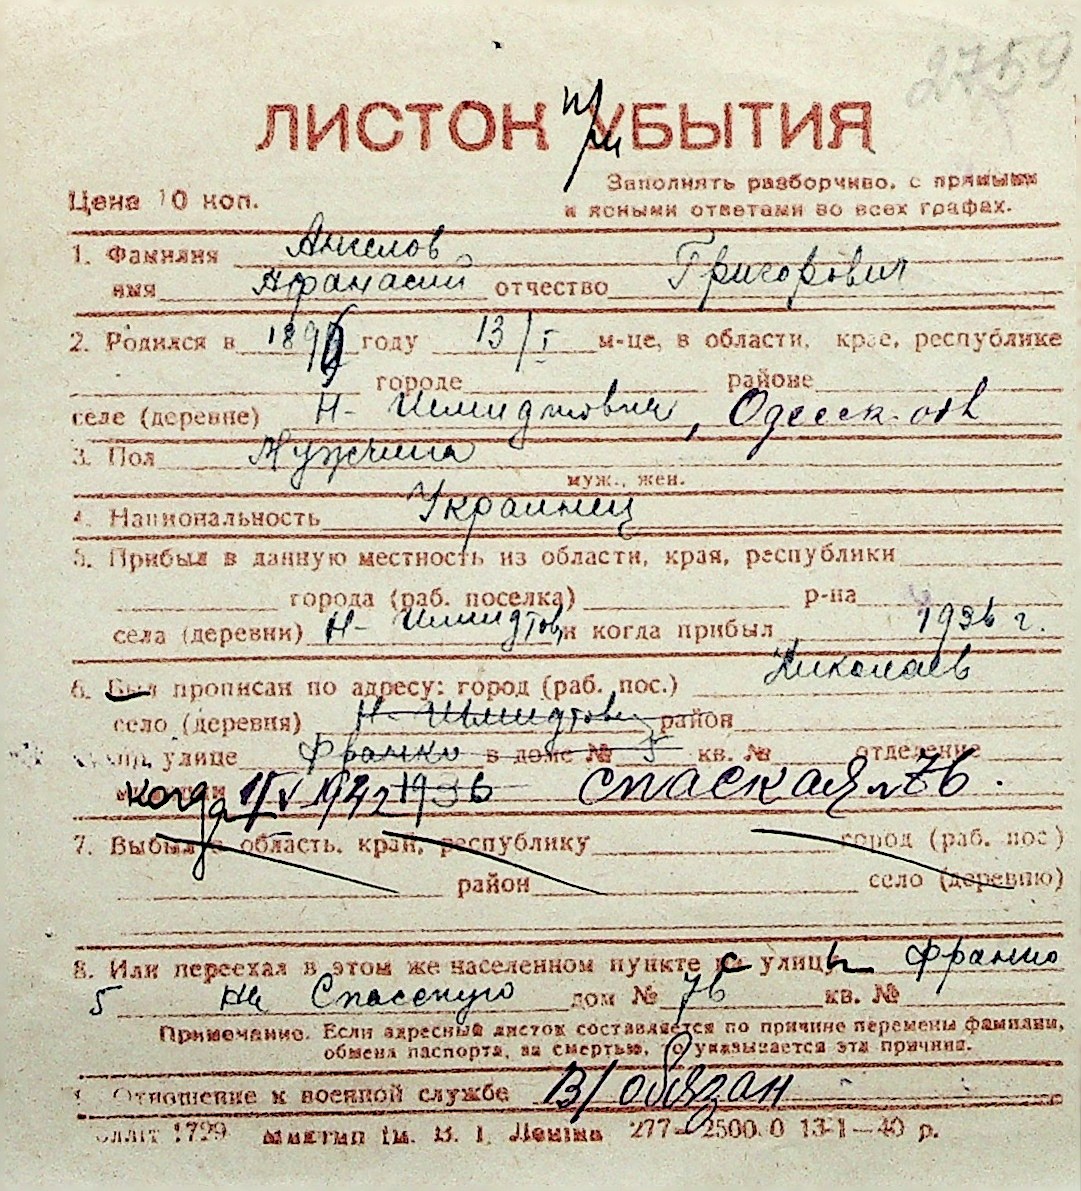 2759
ЛИСТОК при УБЫТИЯ
Цена 10 коп.
Заполнять разборчиво, с прямыми
и ясными ответами во всех графах.
1. Фамилия Ангелов
имя Афанасий отчество Григорович
2. Родился в 189 году 13/I м-це, в области, крае, республике
городе районе
селе (деревне) Н- Шмидтовка, Одесск. обл
3. Пол Мужчина
муж., жен.
4. Национальность Украинец
5. Прибыл в данную местность из области, края, республики
города (раб. поселка) р-на
села (деревни) Н- Шмидтов и когда прибыл 1936 г.
6. Был прописан по адресу: город (раб. пос.) Николаев
село (деревня) Н- Шмидтовк район
по улице Франко в доме № 5 кв. № отделение
милиции когда 1/V-1942 1936 СПАСКАЯ 76.
7. Выбыл в область, край, республику город (раб. пос)
район село (деревню)
8. Или переехал в этом же населенном пункте с улицы Франко
5 на Спасскую дом № 76 кв. №
Примечание. Если адресный листок составляется по причине перемены фамилии,
обмена паспорта, за смертью, то указывается эта причина.
9. Отношение к военной службе В/обязан
1729 Миктип ім. В. І. Леніна 277—2500.0 13-1—40 р.